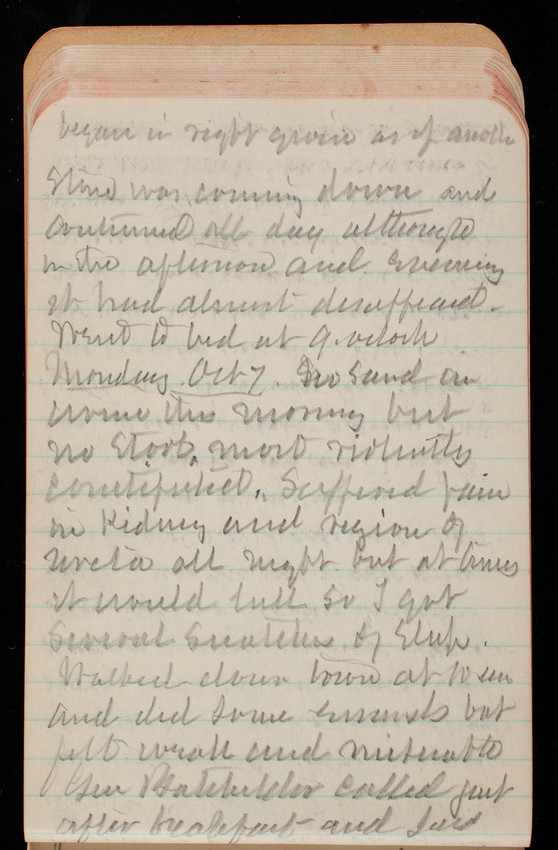 began in right groin as if another
stone was coming down and
continued all day although
in the afternoon and evening
it had almost disappeared.
Went to bed at 9. oclock
Monday. Oct 7. No sand in
urine this morning but
no stool, most violently
constipated. Suffered pain
in Kidney and region of
ureter all night but at times
it would lull so I got
several snatches of sleep.
Walked down town at 10 am
and did some errands but
felt weak and miserable
Gen Batchelder called just
after breakfast and